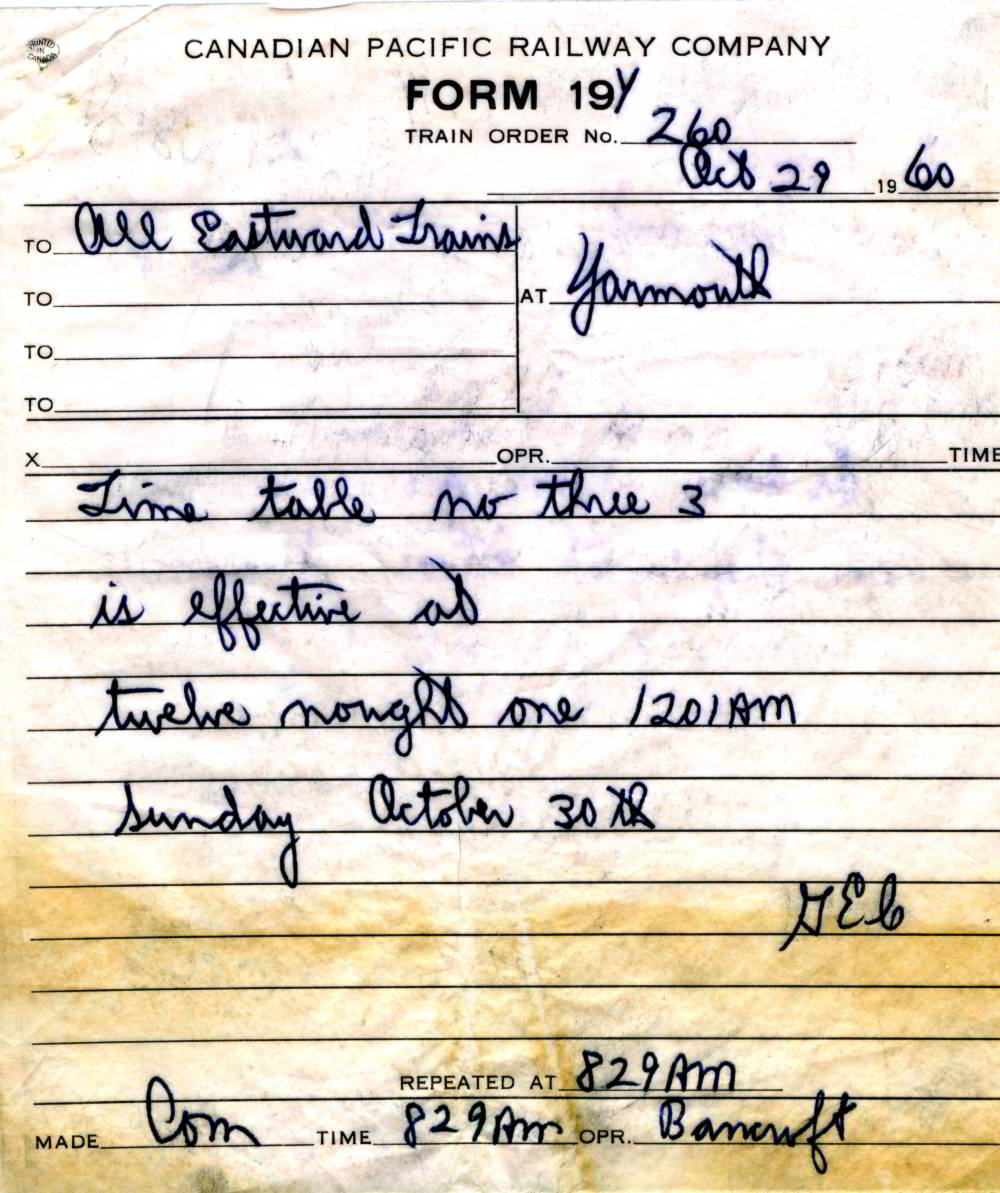 PRINTED
IN
CANADA
CANADIAN PACIFIC RAILWAY COMPANY
FORM 19Y
TRAIN ORDER No. 260
Oct 29 1960
TO All Eastward Trains
TO
AT Yarmouth
TO
TO
X OPR. TIME
Time table no three 3
is effective at
twelve nought one 1201AM
Sunday October 30th
GEC
REPEATED AT 829AM
MADE Com TIME 829Am OPR. Bancroft